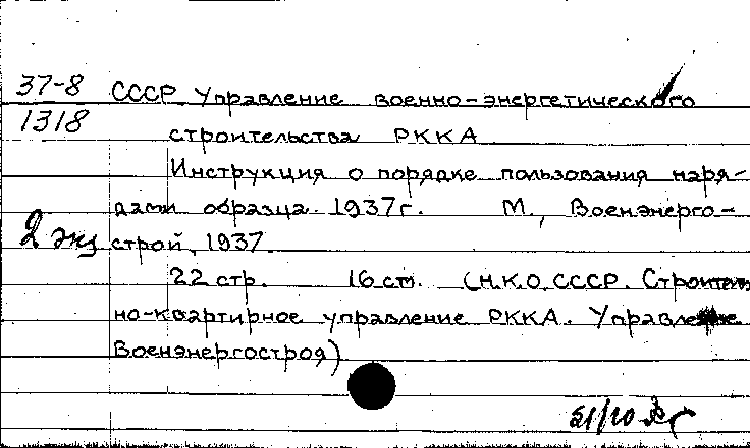 37-8 СССР Управление военно-энергетического
1318
строительства РККА
Инструкция о порядке пользования наря-
дами образца 1937г. М., Военэнерго-
2 экз строй, 1937
22 стр. 16 см. (Н.К.О. СССР. Строитель
но-квартирное управление РККА. Управление
Военэнергостроя)
21/10